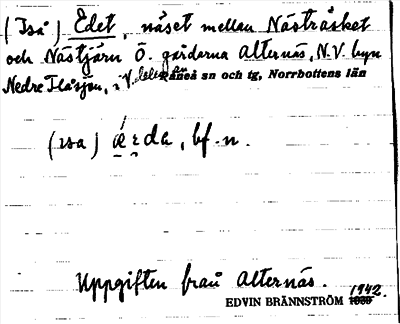 (Iså) Edet, näset mellan Nästräsket
och Nästjärn Ö. gårdarna Alternäs, N.V. byn
Nedre Flåsjön, i V. delen av Råneå sn och tg, Norrbottens län
(isa) ǽrda, bf. n.
Uppgiften från Alternäs.
1942.
EDVIN BRÄNNSTRÖM 1930